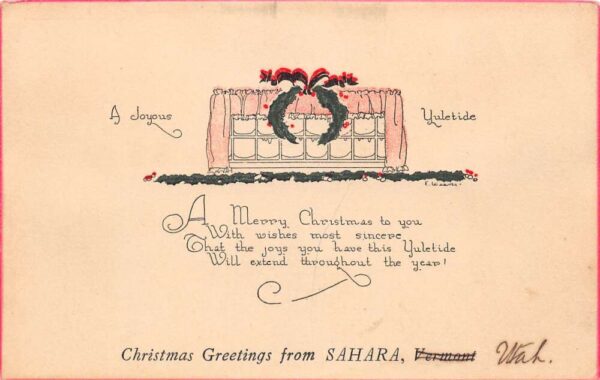 A Joyous Yuletide
E. Weaver.
A Merry Christmas to you
With wishes most sincere
That the joys you have this Yuletide
Will extend throughout the year!
Christmas Greetings from SAHARA, Vermont Utah.